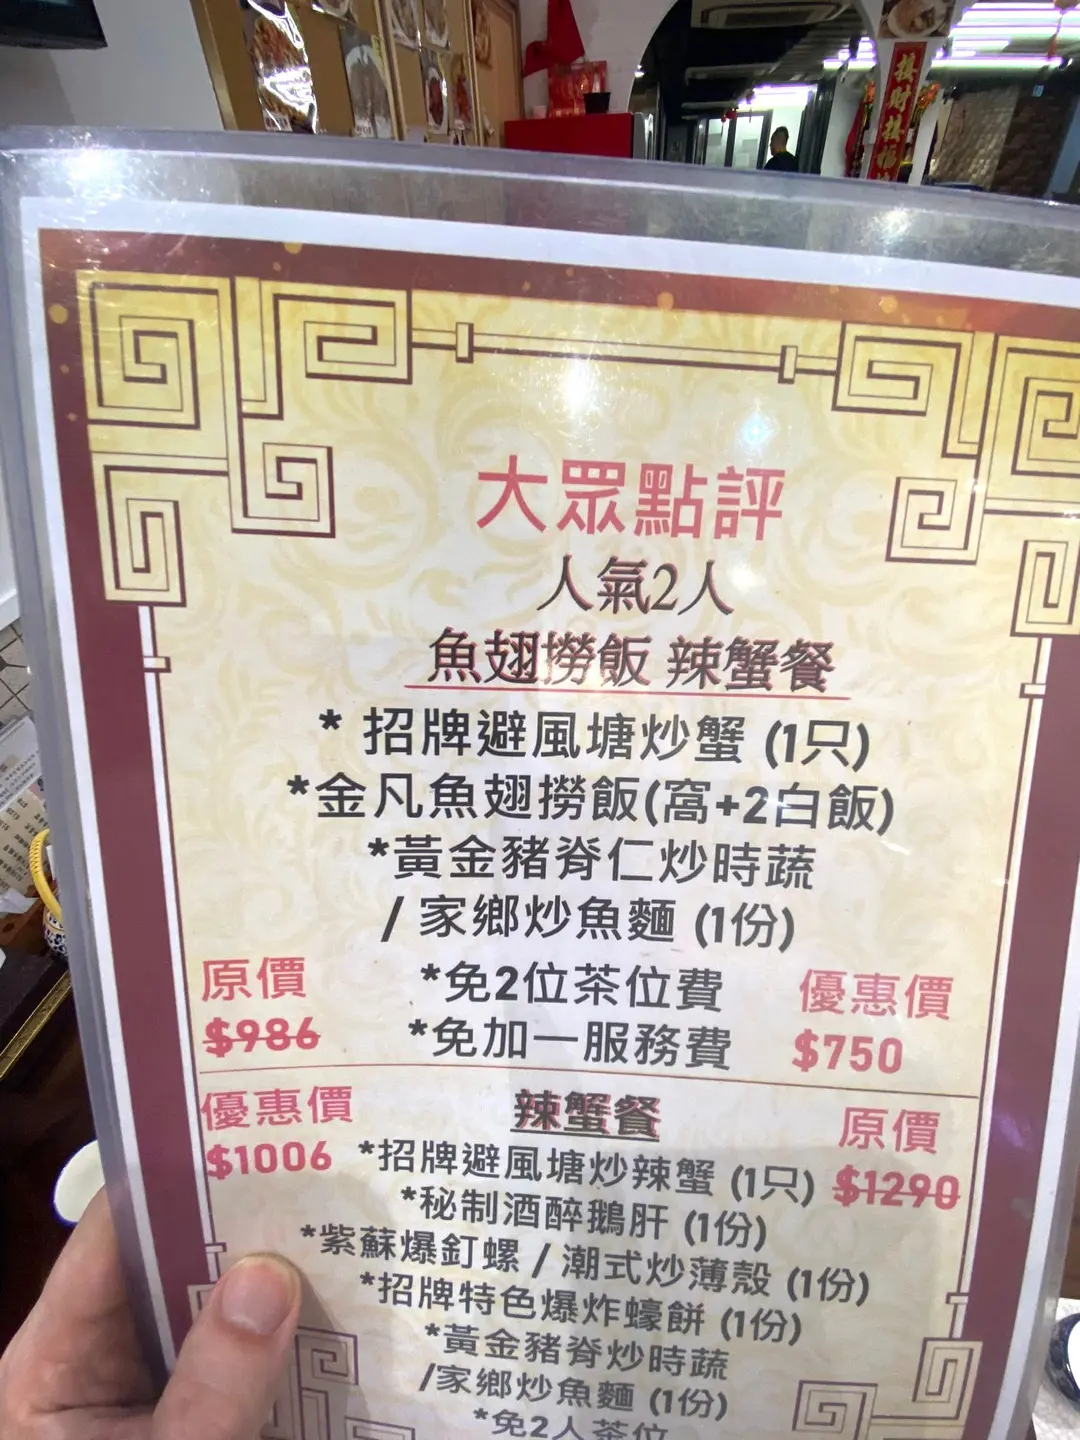 接財接福
大眾點評
人氣2人
魚翅撈飯 辣蟹餐
* 招牌避風塘炒蟹 (1只)
*金凡魚翅撈飯(窩+2白飯)
*黃金豬脊仁炒時蔬
/ 家鄉炒魚麵 (1份)
原價
$986
*免2位茶位費
*免加一服務費
優惠價
$750
優惠價
$1006
辣蟹餐
原價
$1290
*招牌避風塘炒辣蟹 (1只)
*秘制酒醉鵝肝 (1份)
*紫蘇爆釘螺 / 潮式炒薄殼 (1份)
*招牌特色爆炸蠔餅 (1份)
*黃金豬脊炒時蔬
/家鄉炒魚麵 (1份)
*免2人茶位